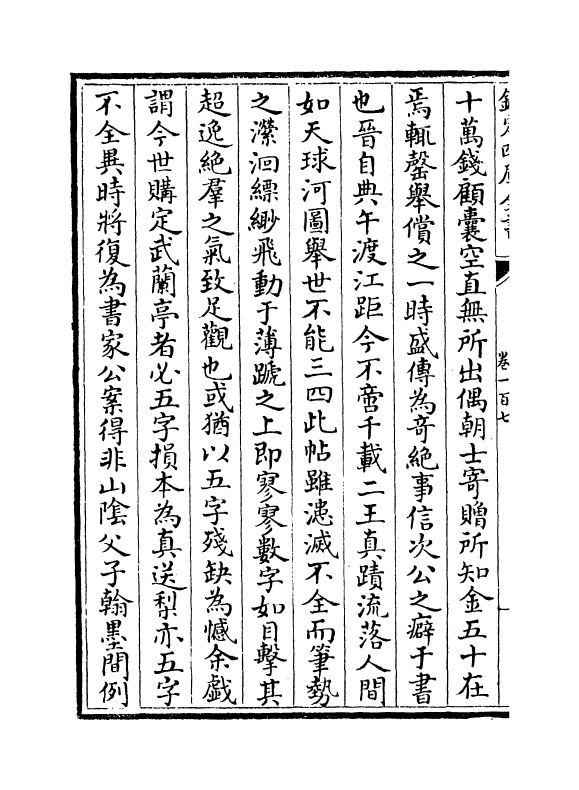 欽定四庫全書
卷一百七
十萬錢顧囊空直無所出偶朝士寄贈所知金五十在
焉輒罄舉償之一時盛傳為奇絕事信次公之癖于書
也晉自典午渡江距今不啻千載二王真蹟流落人間
如天球河圖舉世不能三四此帖雖漶滅不全而筆勢
之瀠洄縹緲飛動于薄蹏之上即寥寥數字如目擊其
超逸絕羣之氣致足觀也或猶以五字殘缺為憾余戲
謂今世購定武蘭亭者必五字損本為真送梨亦五字
不全異時將復為書家公案得非山陰父子翰墨間例